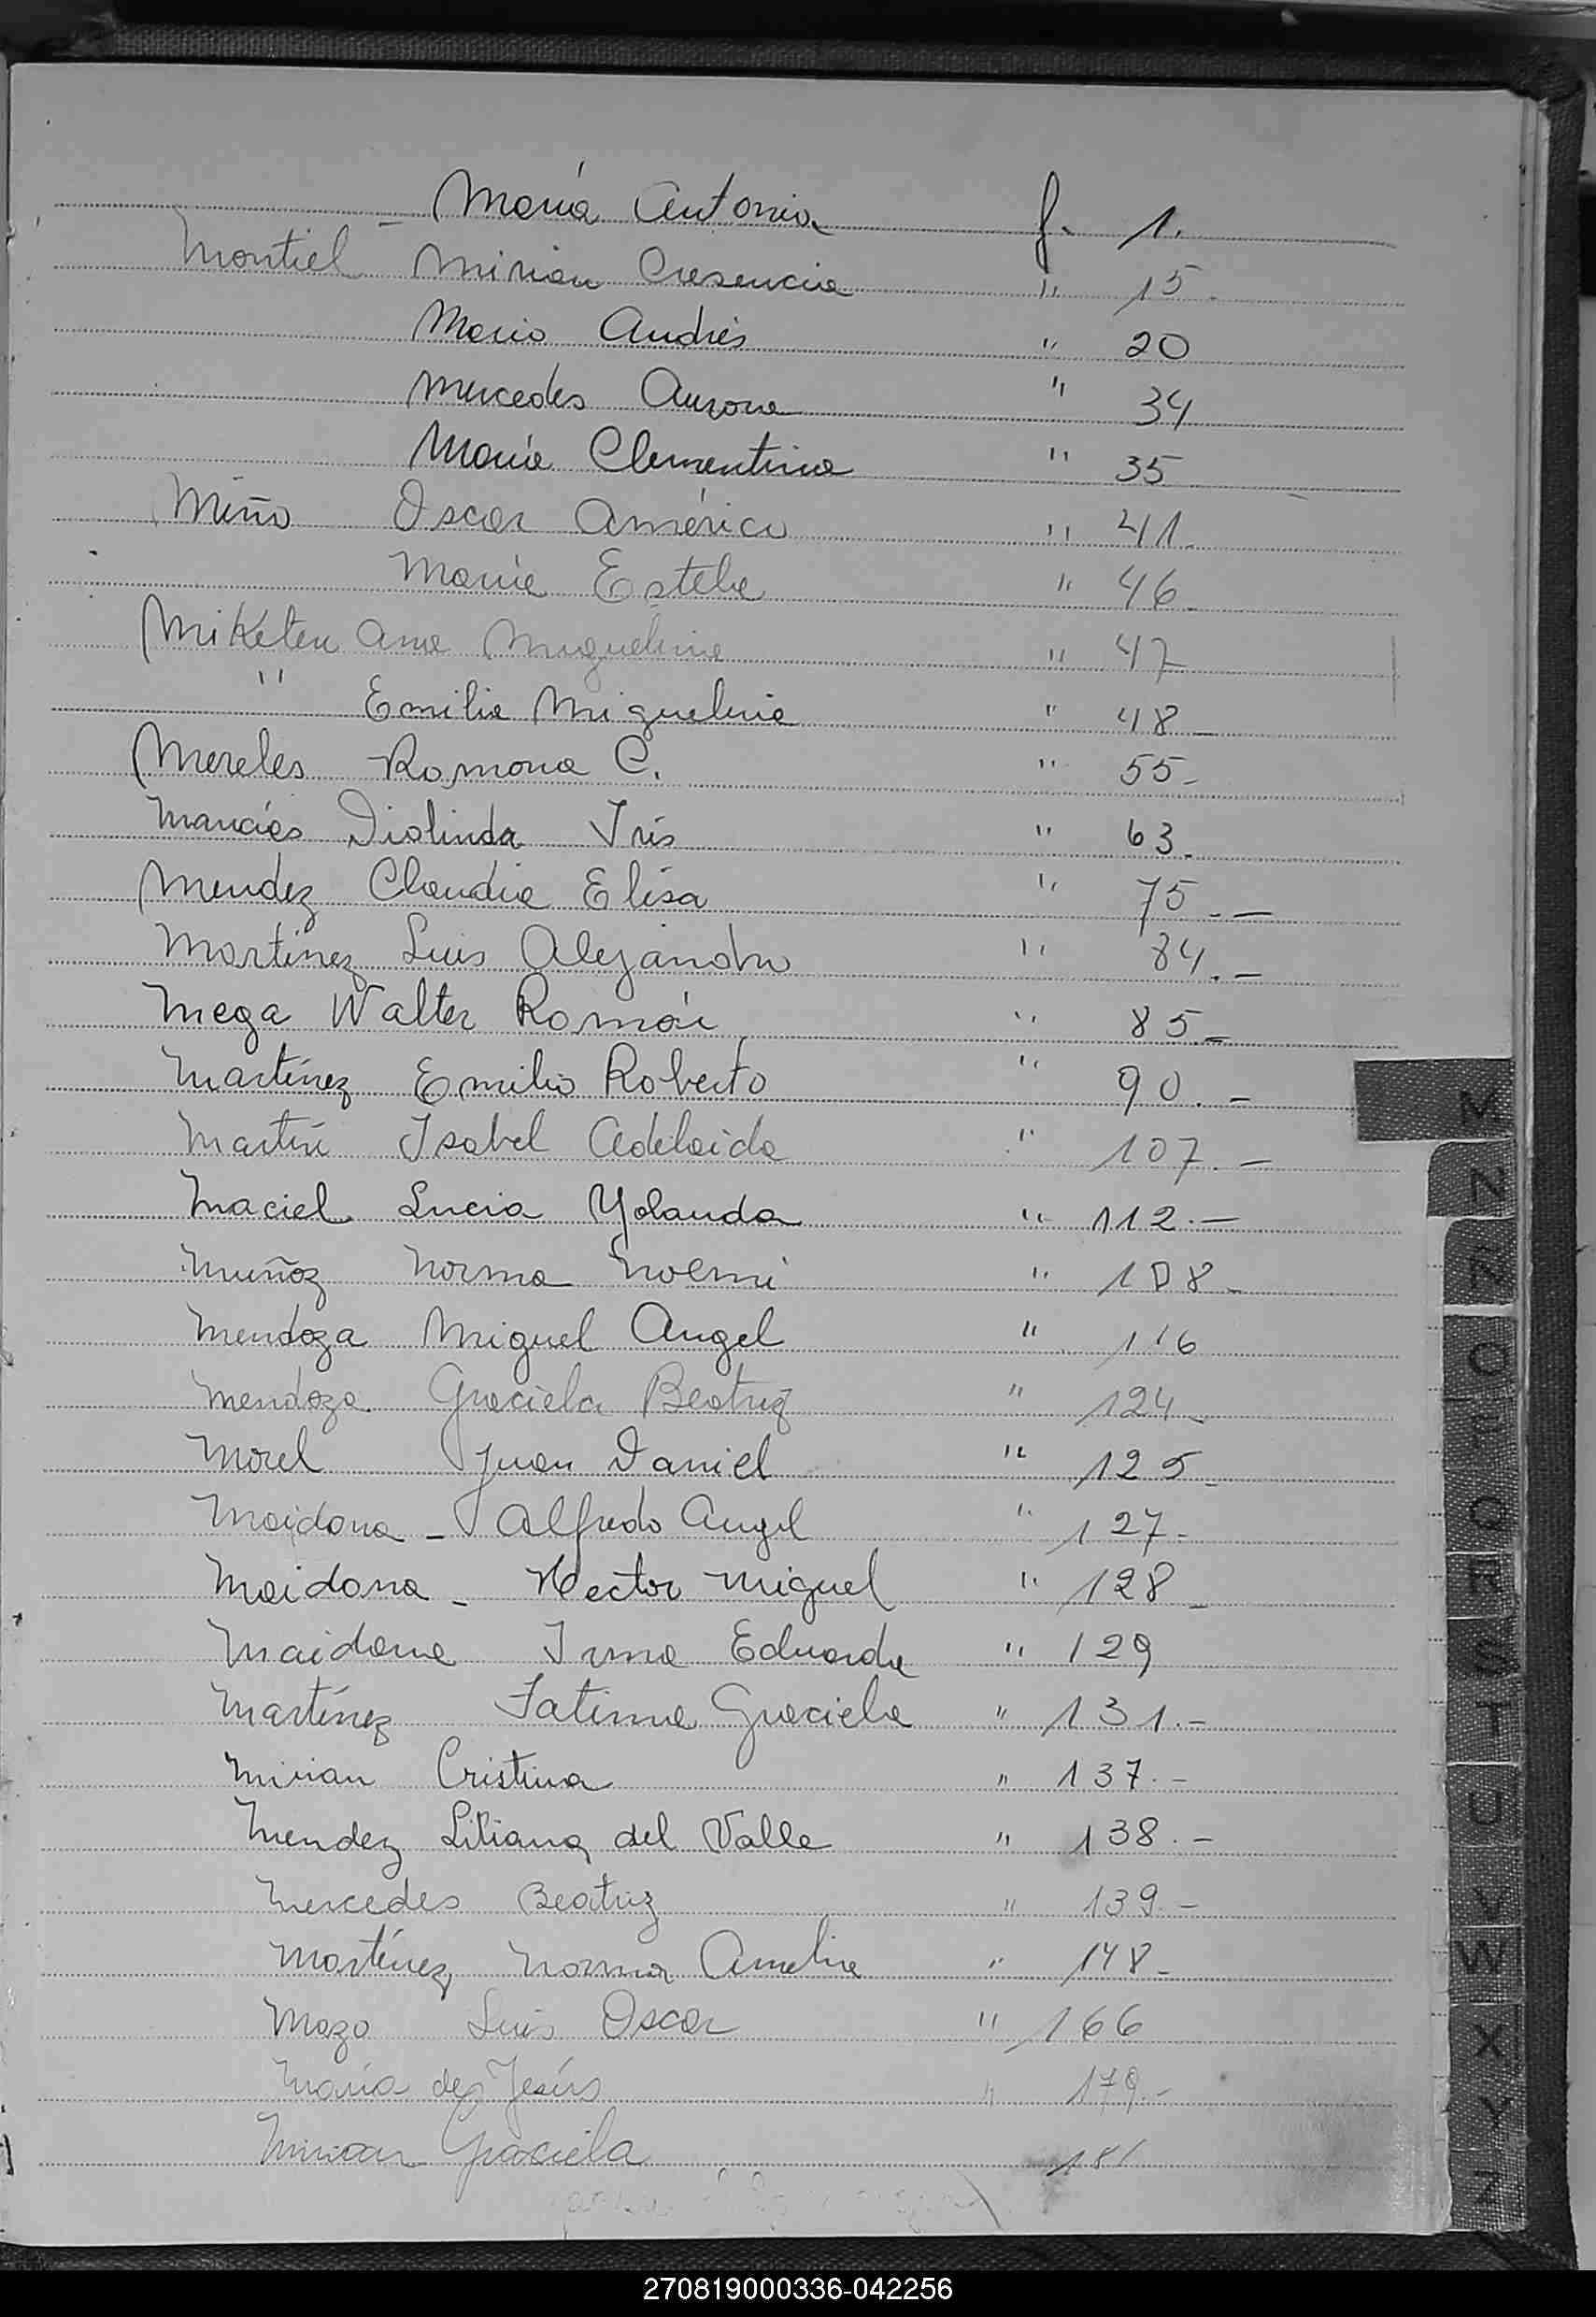 - María Antonia f. 1.
Montiel Mirian Cresencia " 15-
Mario Andrés " 20
Mercedes Aurora " 34
María Clementina " 35
Miño Oscar Américo " 41-
María Estela " 46-
Miketen Ana Miguelina " 47
" Emilia Miguelina " 48-
Mereles Romona C. " 55-
Diolinda Iris " 63-
Mendez Claudia Elisa " 75.-
Martínez Luis Alejandro " 84.-
Mega Walter Román " 85-
Martínez Emilio Roberto " 90.-
Martín Isabel Adelaida " 107.-
Maciel Lucia Yolanda " 112.-
Muñoz Norma Noemi " 108-
Mendoza Miguel Angel " 116
Mendoza Graciela Beatriz " 124-
Morel Juan Daniel " 125-
Maidana - Alfredo Angel " 127-
Maidana - Hector Miguel " 128-
Maidana Irma Eduarda " 129
Martínez Fatima Graciela " 131.-
Mirian Cristina " 137.-
Mendez Liliana del Valle " 138.-
Mercedes Beatriz " 139.-
Martínez Norma Amelia " 148-
Mazo Luis Oscar " 166
María de Jesús " 179.-
Mirian Graciela 181
M
N
Ñ
O
P
Q
R
S
T
U
V
W
X
Y
Z
270819000336-042256